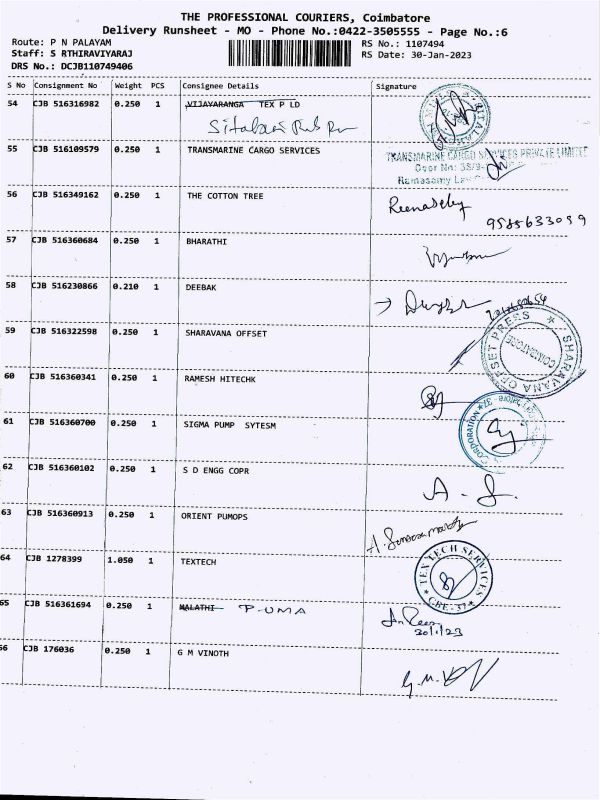 THE PROFESSIONAL COURIERS, Coimbatore
Delivery Runsheet - MO - Phone No.:0422-3505555 - Page No.:6
Route: P N PALAYAM
RS No.: 1107494
Staff: S RTHIRAVIYARAJ
RS Date: 30-Jan-2023
DRS No.: DCJB110749406
S No Consignment No Weight PCS Consignee Details Signature
54 CJB 516316982 0.250 1 VIJAYARANGA TEX P LD
55 CJB 516109579 0.250 1 TRANSMARINE CARGO SERVICES
TRANSMARINE CARGO SERVICES PRIVATE LIMITED
Door No: 38/9-
Ramasamy
56 CJB 516349162 0.250 1 THE COTTON TREE
9585633099
57 CJB 516360684 0.250 1 BHARATHI
58 CJB 516230866 0.210 1 DEEBAK
59 CJB 516322598 0.250 1 SHARAVANA OFFSET
SHARAVANA OFFSET PRESS
COIMBATORE
60 CJB 516360341 0.250 1 RAMESH HITECHK
61 CJB 516360700 0.250 1 SIGMA PUMP SYTESM
CORPORATION
62 CJB 516360102 0.250 1 S D ENGG COPR
A.S.
63 CJB 516360913 0.250 1 ORIENT PUMOPS
64 CJB 1278399 1.050 1 TEXTECH
TEX TECH SERVICES
CBE-37
65 CJB 516361694 0.250 1 MALATHI P.UMA
30/1/23
66 CJB 176036 0.250 1 G M VINOTH